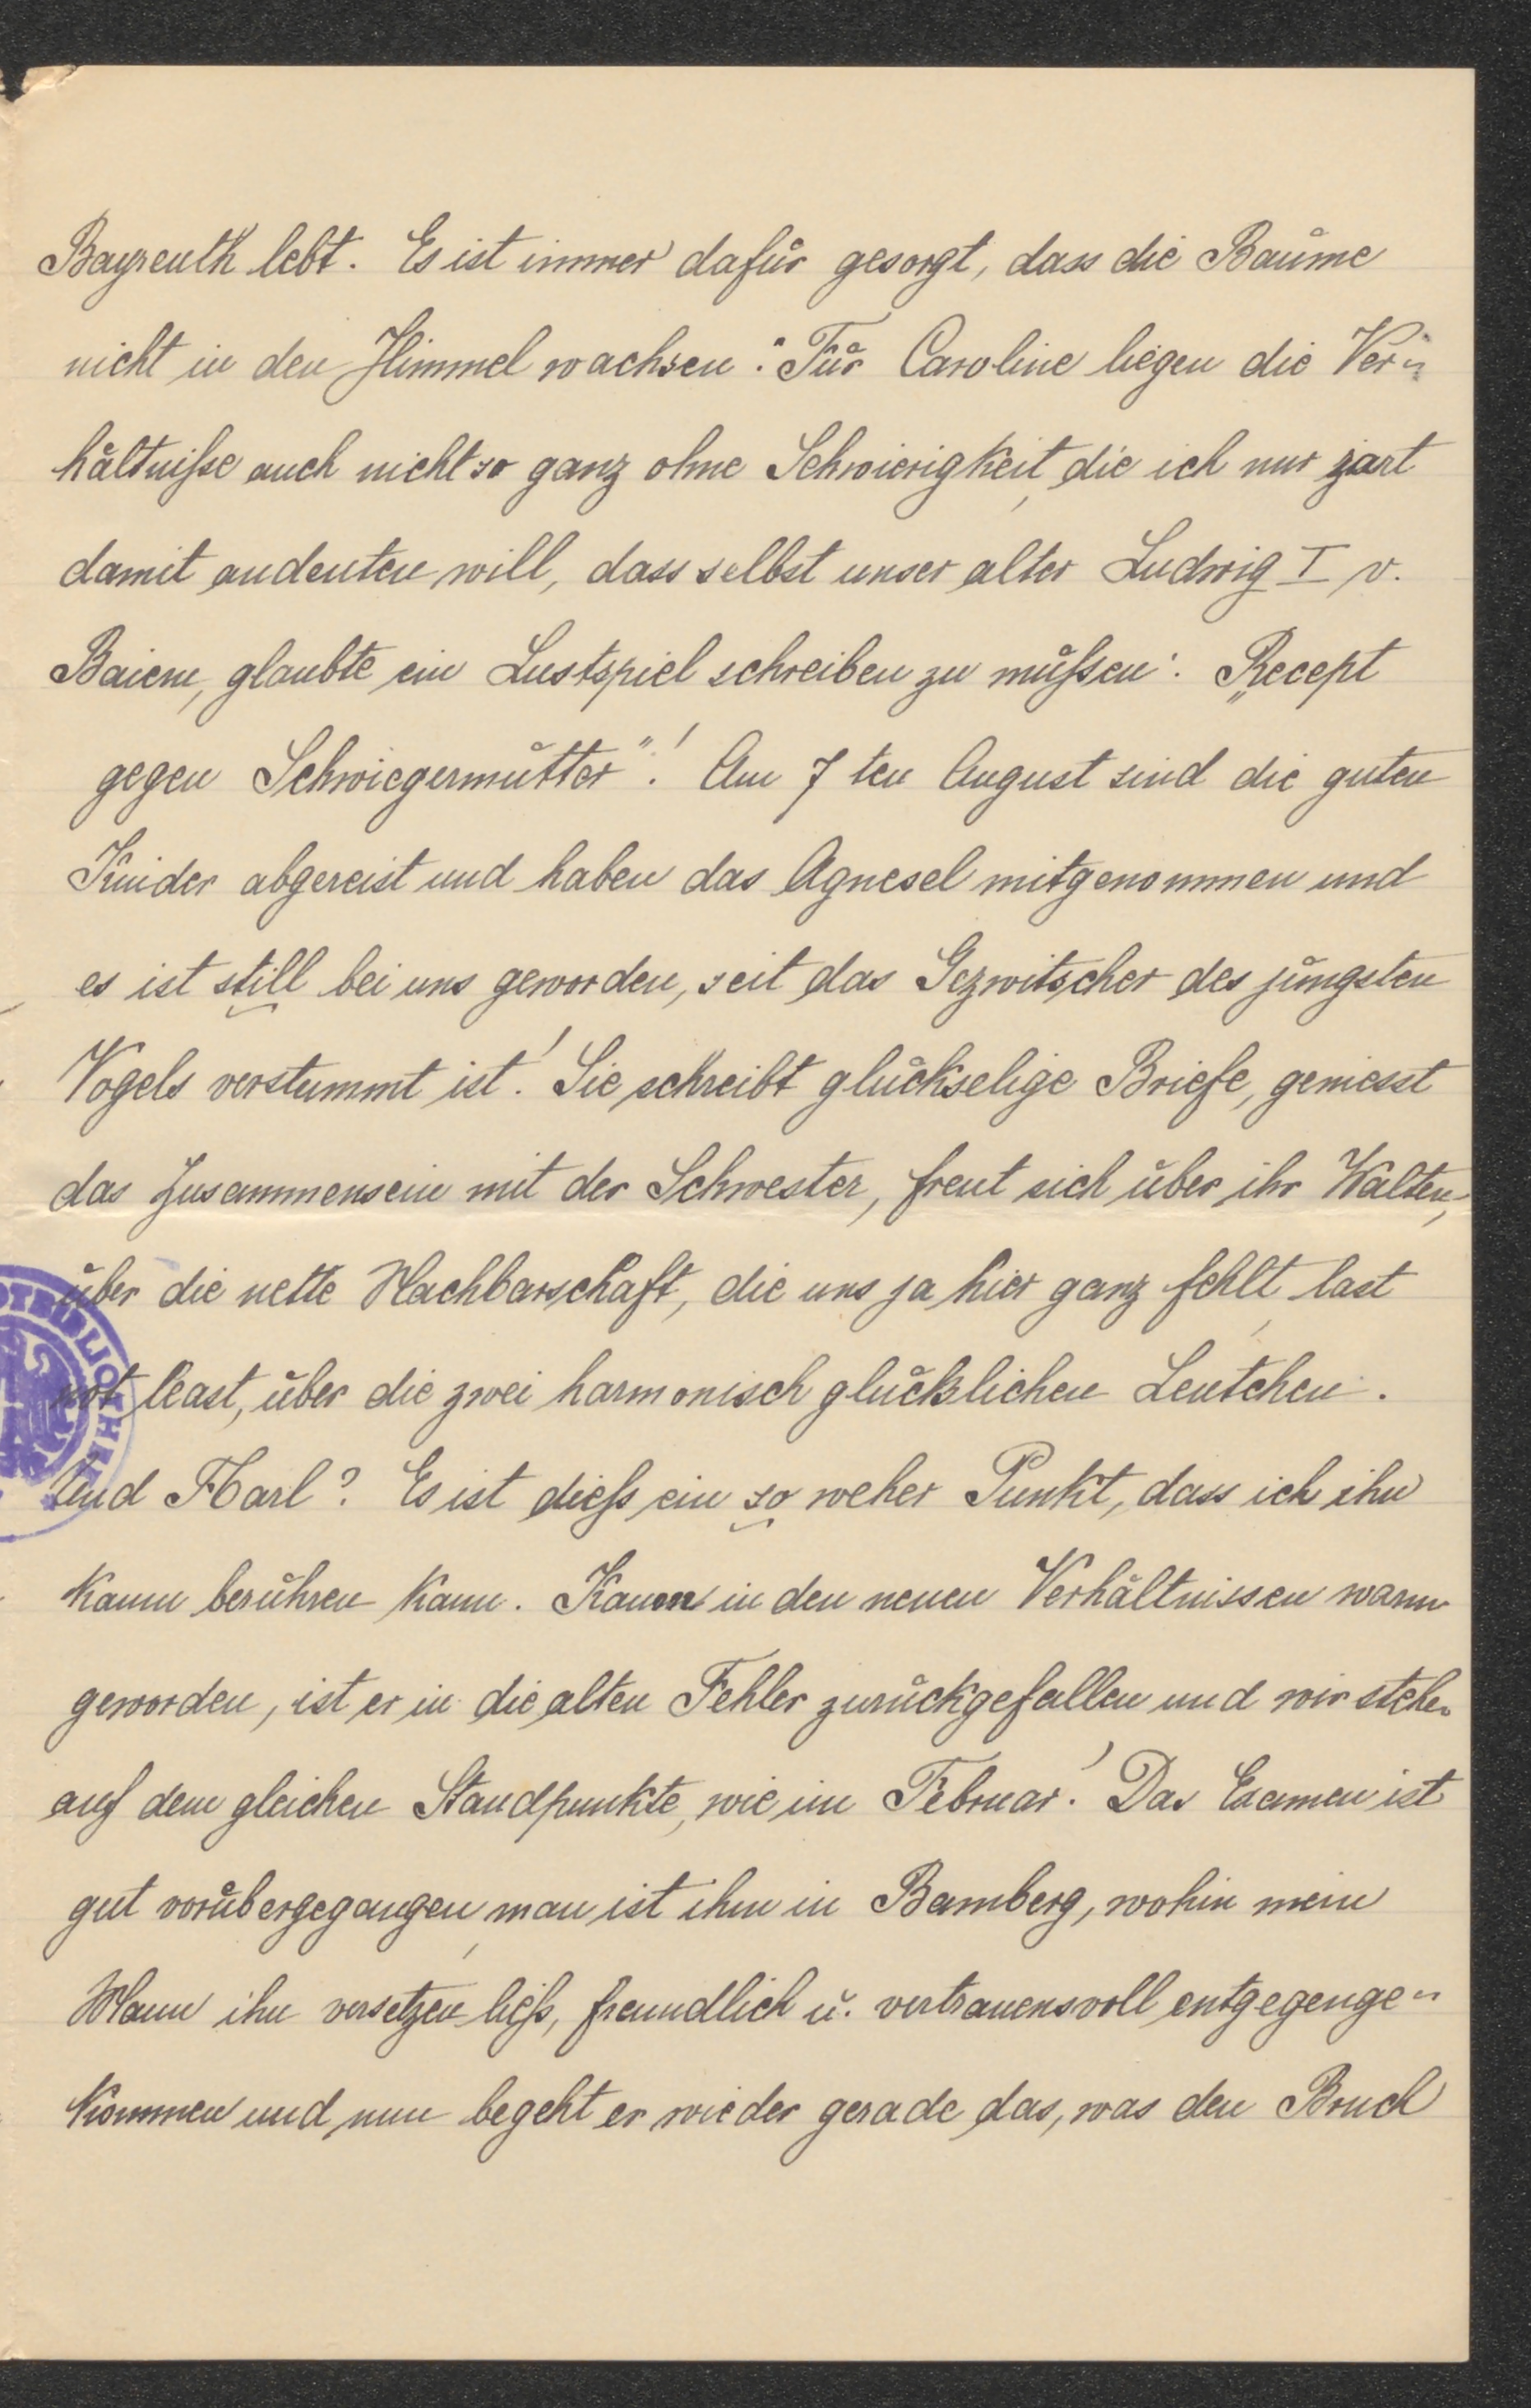 Bayreuth lebt. Es ist immer dafür gesorgt, dass die Bäume
nicht in den Himmel wachsen." Für Caroline liegen die Ver-
hältniße auch nicht so ganz ohne Schwierigkeit, die ich nur zart
damit andeuten will, dass selbst unser alter Ludwig I v.
Baiern, glaubte ein Lustspiel schreiben zu müßen: „Recept
gegen Schwiegermütter"! Am 7 ten August sind die guten
Kinder abgereist und haben das Agnesel mitgenommen und
es ist still bei uns geworden, seit das Gezwitscher des jüngsten
Vogels verstummt ist! Sie schreibt glückselige Briefe, geniesst
das Zusammensein mit der Schwester, freut sich über ihr Walten,
über die nette Nachbarschaft, die uns ja hier ganz fehlt, last
not least, über die zwei harmonisch glücklichen Leutchen.
Und Karl? Es ist dieß ein so weher Punkt, dass ich ihn
kaum berühren kann. Kaum in den neuen Verhältnissen warm
geworden, ist er in die alten Fehler zurückgefallen und wir stehen
auf dem gleichen Standpunkte, wie im Februar! Das Examen ist
gut vorübergegangen, man ist ihm in Bamberg, wohin mein
Mann ihn versetzen ließ, freundlich u. vertrauensvoll entgegenge-
kommen und nun begeht er wieder gerade das, was den Bruch